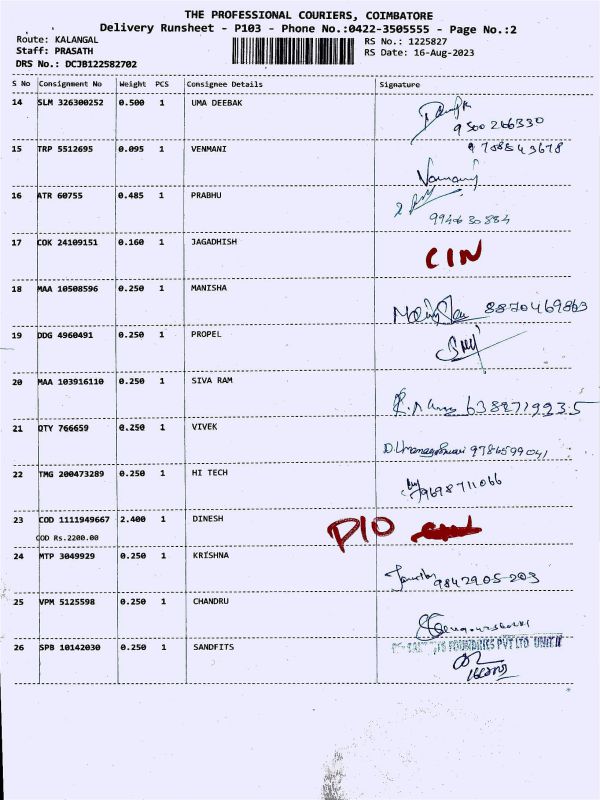 THE PROFESSIONAL COURIERS, COIMBATORE
Delivery Runsheet - P103 - Phone No.:0422-3505555 - Page No.:2
Route: KALANGAL
Staff: PRASATH
DRS No.: DCJB122582702
RS No.: 1225827
RS Date: 16-Aug-2023
S No Consignment No Weight PCS Consignee Details Signature
14 SLM 326300252 0.500 1 UMA DEEBAK
9500266330
15 TRP 5512695 0.095 1 VENMANI
9788543678
16 ATR 60755 0.485 1 PRABHU
9946 30884
17 COK 24109151 0.160 1 JAGADHISH
CIN
18 MAA 10508596 0.250 1 MANISHA
8870469863
19 DDG 4960491 0.250 1 PROPEL
20 MAA 103916110 0.250 1 SIVA RAM
21 OTY 766659 0.250 1 VIVEK
9786599041
22 TMG 200473289 0.250 1 HI TECH
9698711066
23 COD 1111949667 2.400 1 DINESH
COD Rs.2200.00
D10
24 MTP 3049929 0.250 1 KRISHNA
9842905-203
25 VPM 5125598 0.250 1 CHANDRU
26 SPB 10142030 0.250 1 SANDFITS
FOUNDRIES PVT LTD UNIT II